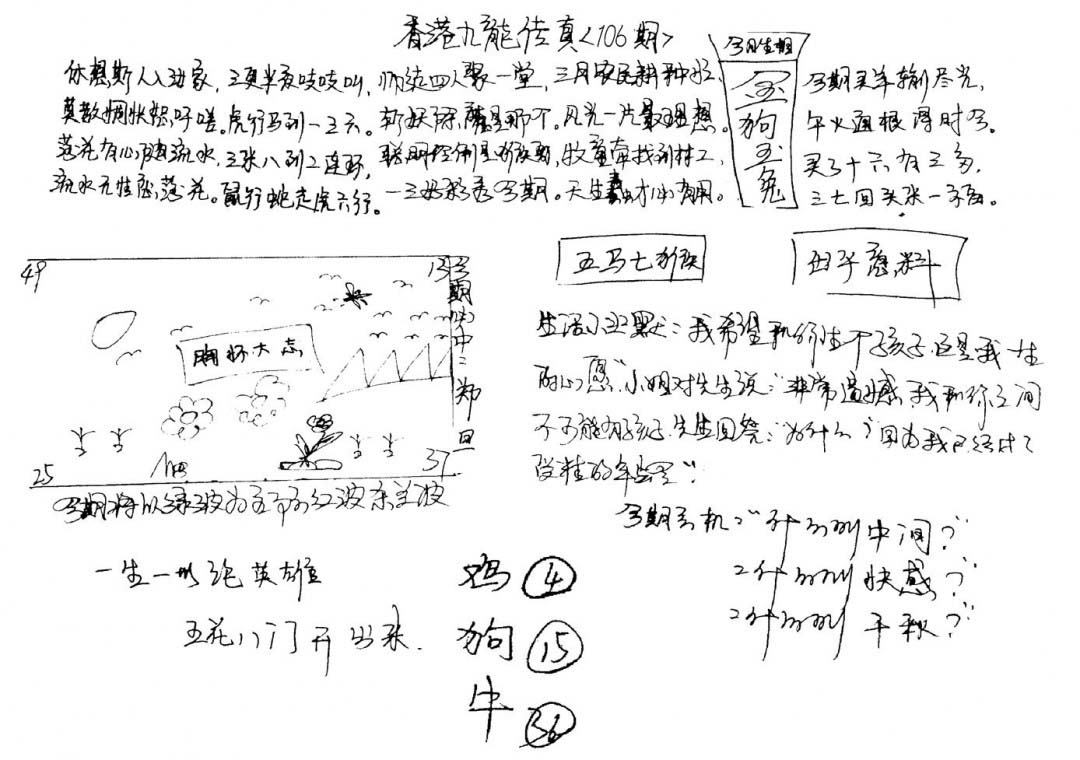 香港九龙传真<106期>
今期生肖
金
狗
玉
兔
休想斯人入冯家，三更半夜吱吱叫，师徒四人聚一堂，三月农民耕种忙，
今期买羊输尽光，
莫散惆怅，吁嗟。虎行马到一二六。斩妖除魔是那个。风光一片最理想。
午火通根得时令。
落花有心随流水，三张八到二连环，聪明控制是猴哥，牧童牵找到村工，
买了十六有三多，
流水无情恋落花。鼠行蛇走虎六行。一三必彩透今期。天生蠢才必有用。
三七回头来一手。
五马七猴
母子废料
49
13
胸怀大志
今期必中二郑日
25
37
今期将以绿波为主节防红波杂兰波
生活小幽默：我希望和你生个孩子，这是我一生
的心愿"小姐对先生说："非常遗憾，我和你之间
不可能有孩子，先生回答："为什么？"因为我已经过了
受精的年岁"
今期玄机："什么叫中间？"
2什么叫快感？"
2什么叫千秋？"
一生一世绝英雄
五花八门开出来.
鸡 4
狗 15
牛 36